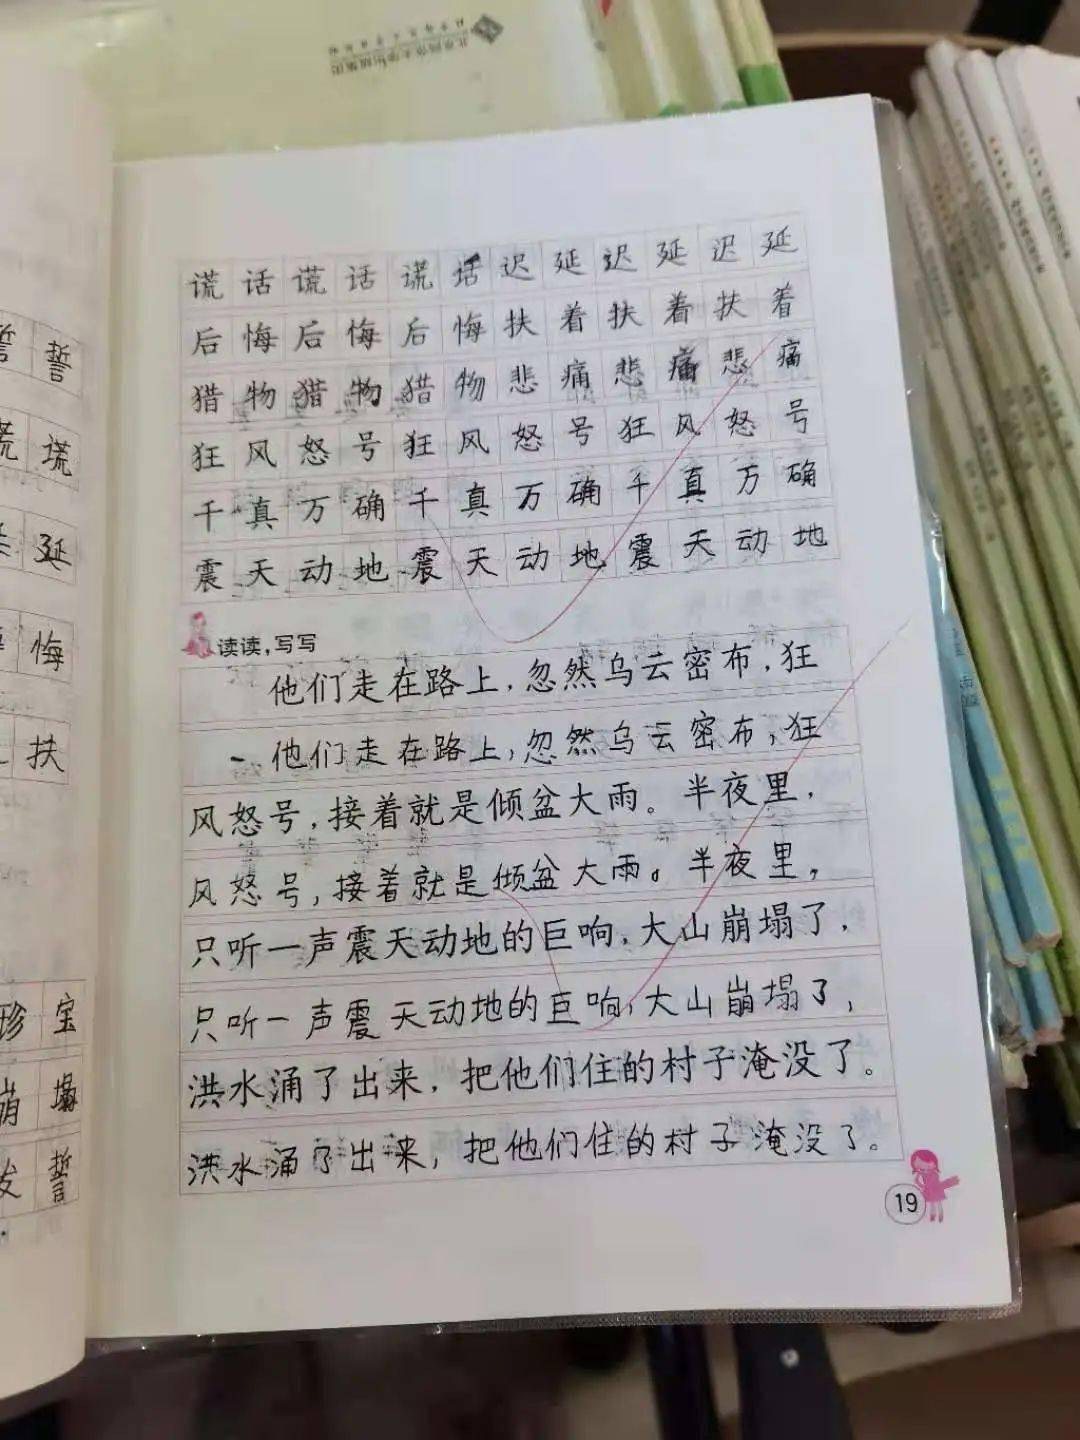 北京师范大学出版集团
谎话谎话谎话迟延迟延迟延
后悔后悔后悔扶着扶着扶着
猎物猎物猎物悲痛悲痛悲痛
狂风怒号狂风怒号狂风怒号
千真万确千真万确千真万确
震天动地震天动地震天动地
读读,写写
他们走在路上,忽然乌云密布,狂
他们走在路上,忽然乌云密布,狂
风怒号,接着就是倾盆大雨。半夜里,
风怒号,接着就是倾盆大雨。半夜里,
只听一声震天动地的巨响,大山崩塌了,
只听一声震天动地的巨响,大山崩塌了,
洪水涌了出来,把他们住的村子淹没了。
洪水涌了出来,把他们住的村子淹没了。
19
誓誓
谎谎
延
悔
扶
珍宝
崩塌
发誓